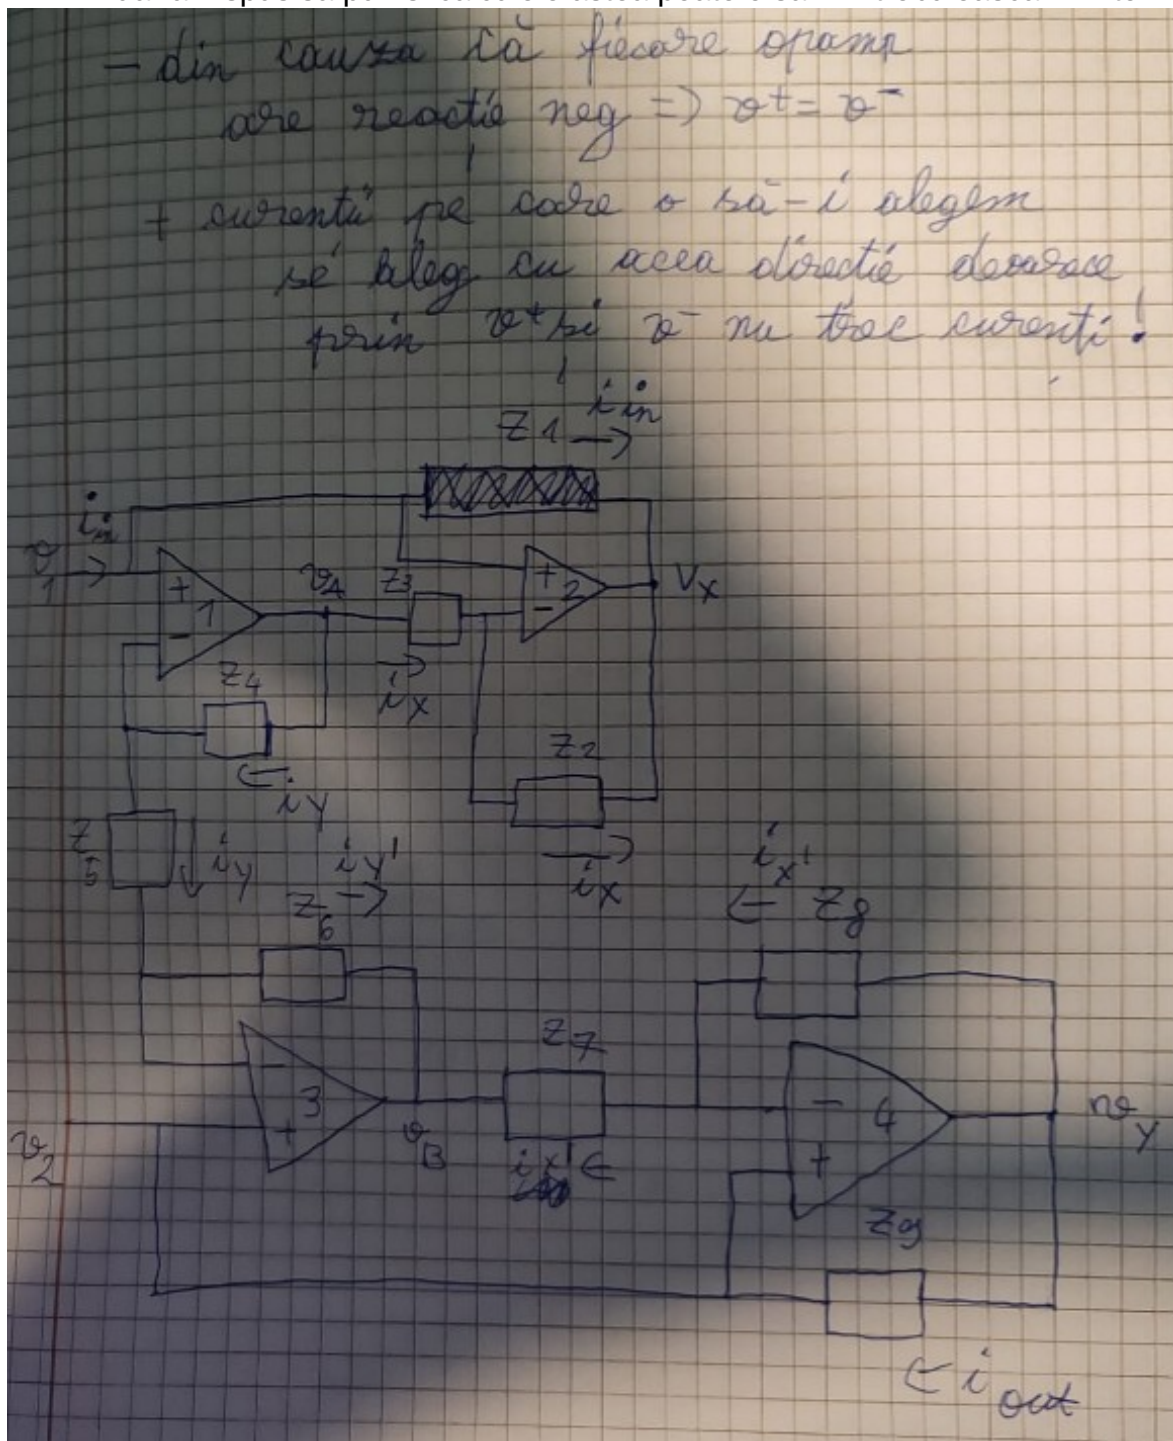 - din cauza că fiecare opamp
are reacție neg => v+ = v-
+ curenții pe care o să-i alegem
se aleg cu acea direcție deoarece
prin v+ și v- nu trec curenți!
Z1 i in
v1 i in
+
1
-
vA
Z3
+
2
-
Vx
ix
Z4
iy
Z2
ix
Z5
iy
iy'
Z6
ix'
Z8
-
3
+
vB
Z7
ix'
-
4
+
vy
v2
Z9
i out